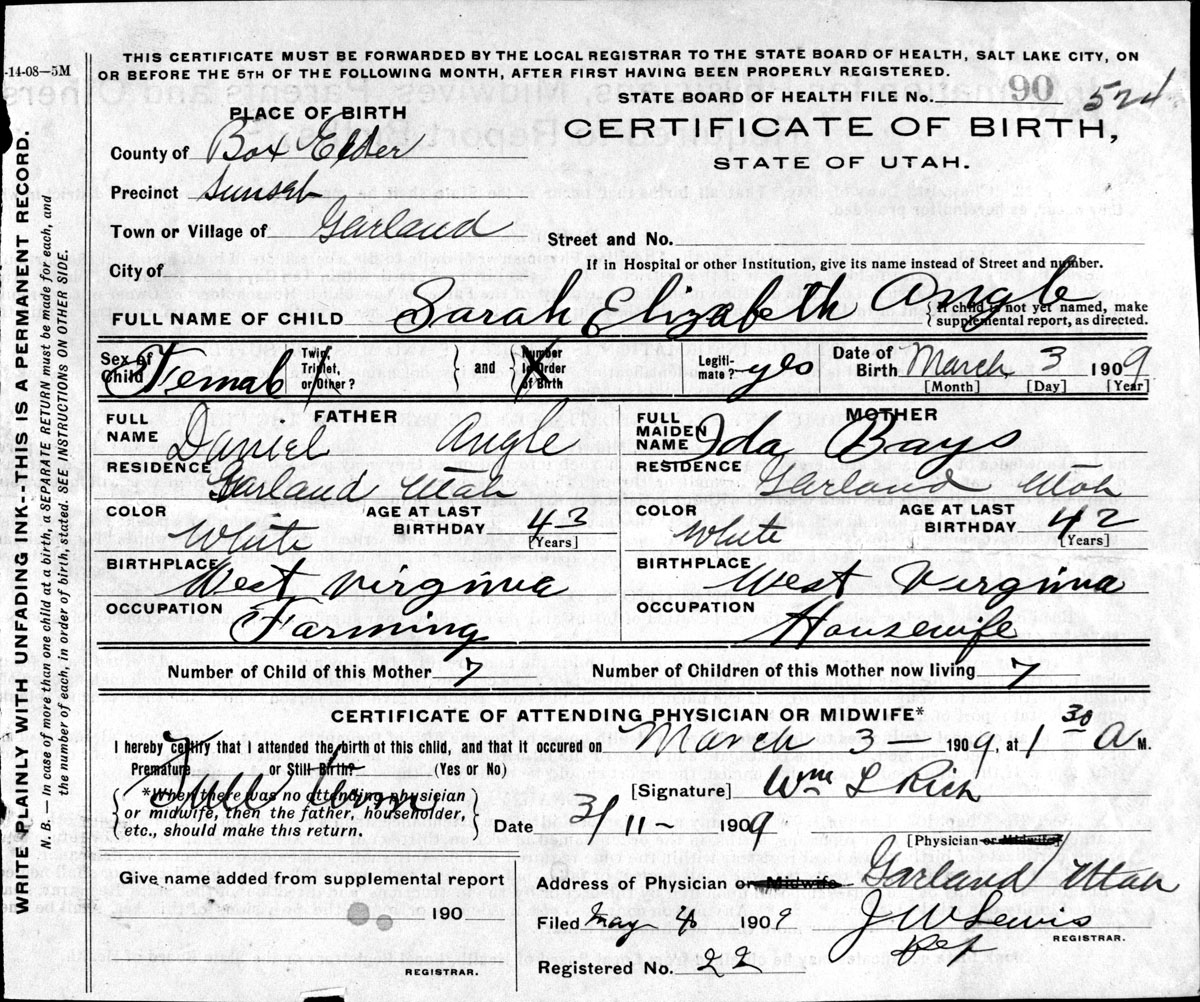 THIS CERTIFICATE MUST BE FORWARDED BY THE LOCAL REGISTRAR TO THE STATE BOARD OF HEALTH, SALT LAKE CITY, ON
-14-08—5M
OR BEFORE THE 5TH OF THE FOLLOWING MONTH, AFTER FIRST HAVING BEEN PROPERLY REGISTERED.
STATE BOARD OF HEALTH FILE No. 90 524
PLACE OF BIRTH
CERTIFICATE OF BIRTH,
STATE OF UTAH.
County of Box Elder
Precinct Sunset
Town or Village of Garland
Street and No.
City of
If in Hospital or other Institution, give its name instead of Street and number.
FULL NAME OF CHILD Sarah Elizabeth Angle
{If child is not yet named, make
supplemental report, as directed.
Sex of Child Female
Twin, Triplet, or Other?
and
Number in Order of Birth
Legiti-mate? yes
Date of Birth March 3 1909
[Month] [Day] [Year]
FATHER
FULL NAME Daniel Angle
RESIDENCE Garland Utah
COLOR White
AGE AT LAST BIRTHDAY 43
[Years]
BIRTHPLACE West Virginia
OCCUPATION Farming
MOTHER
FULL MAIDEN NAME Ida Bays
RESIDENCE Garland Utah
COLOR White
AGE AT LAST BIRTHDAY 42
[Years]
BIRTHPLACE West Virginia
OCCUPATION Housewife
Number of Child of this Mother 7
Number of Children of this Mother now living 7
CERTIFICATE OF ATTENDING PHYSICIAN OR MIDWIFE*
I hereby certify that I attended the birth of this child, and that it occured on March 3 — 1909, at 1 30 A M.
Premature or Still Birth? (Yes or No)
Full born
*When there was no attending physician
or midwife, then the father, householder,
etc., should make this return.
[Signature] Wm L Rich
Date 3/11 - 1909
[Physician or Midwife]
Give name added from supplemental report
190
REGISTRAR.
Address of Physician or Midwife Garland Utah
Filed May 4 1909 J W Lewis
REGISTRAR.
Registered No. 22
WRITE PLAINLY WITH UNFADING INK--THIS IS A PERMANENT RECORD.
N. B.—In case of more than one child at a birth, a SEPARATE RETURN must be made for each, and
the number of each, in order of birth, stated. SEE INSTRUCTIONS ON OTHER SIDE.